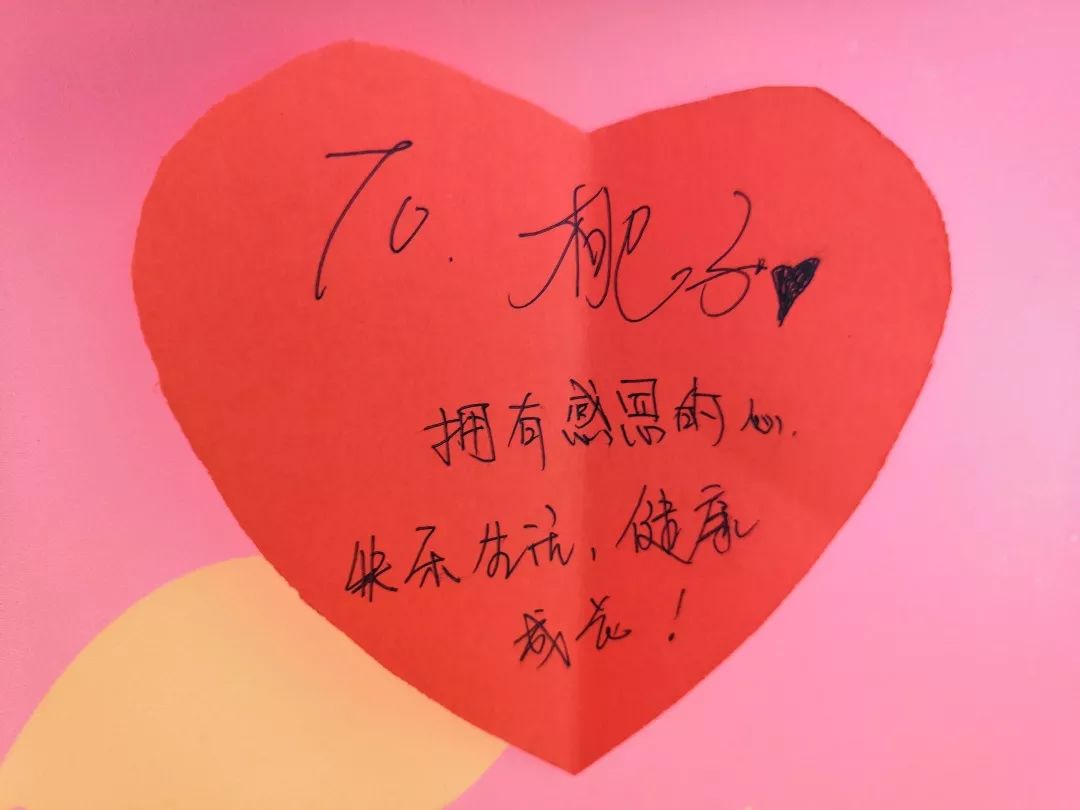 To. 桃子♥
拥有感恩的心.
快乐生活,健康
成长!